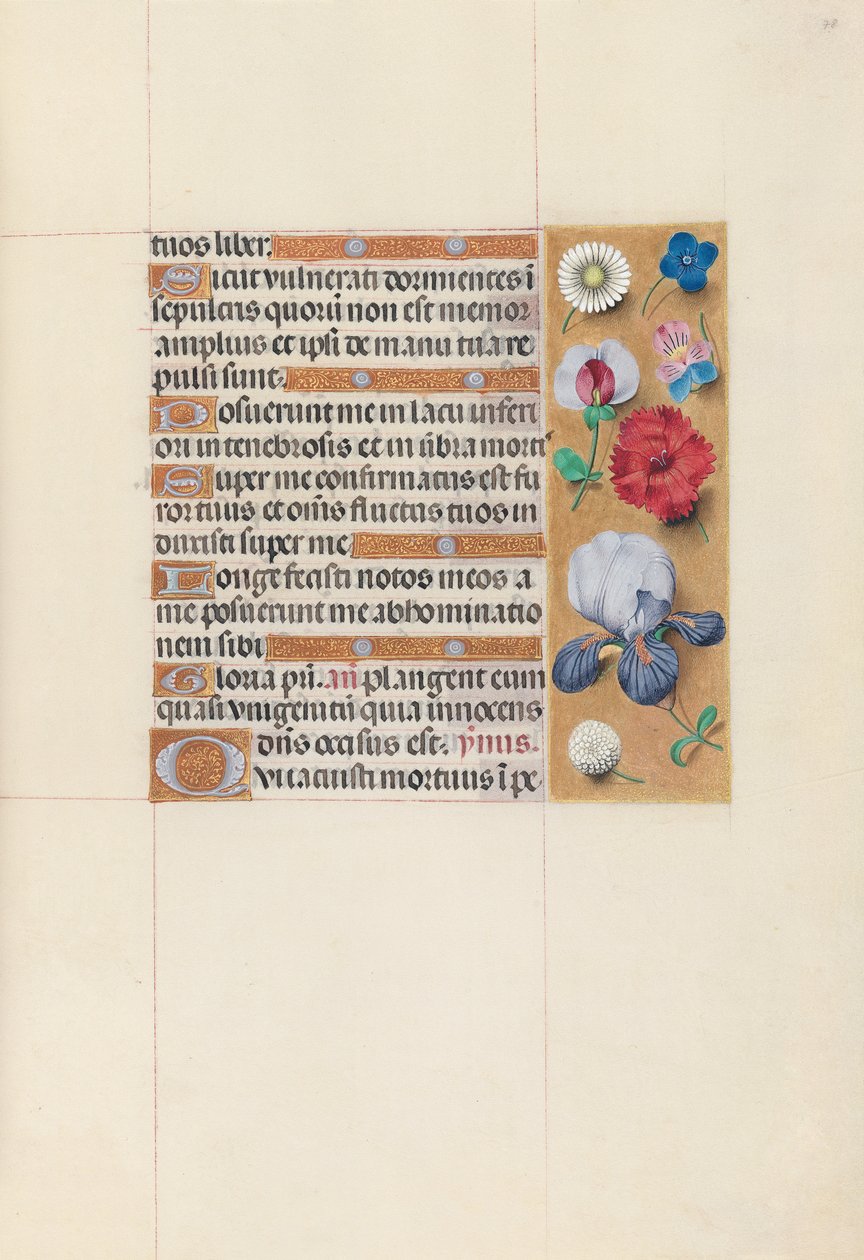 78
tuos liber.
Sicut vulnerati dormientes ī
sepulcris quorū non est memor
amplius et ipsi de manu tua re
pulsi sunt.
Posuerunt me in lacu inferi
ori in tenebrosis et in ūbra morti
Super me confirmatus est fu
ror tuus et om̄s fluctus tuos in
duxisti super me
Longe fecisti notos meos a
me posuerunt me abhominatio
nem sibi
Gloria pr̄i. an̄ plangent eum
quasi vnigenitū quia innocens
dn̄s occisus est. ym̄us.
Qui iacuisti mortuus ī pe